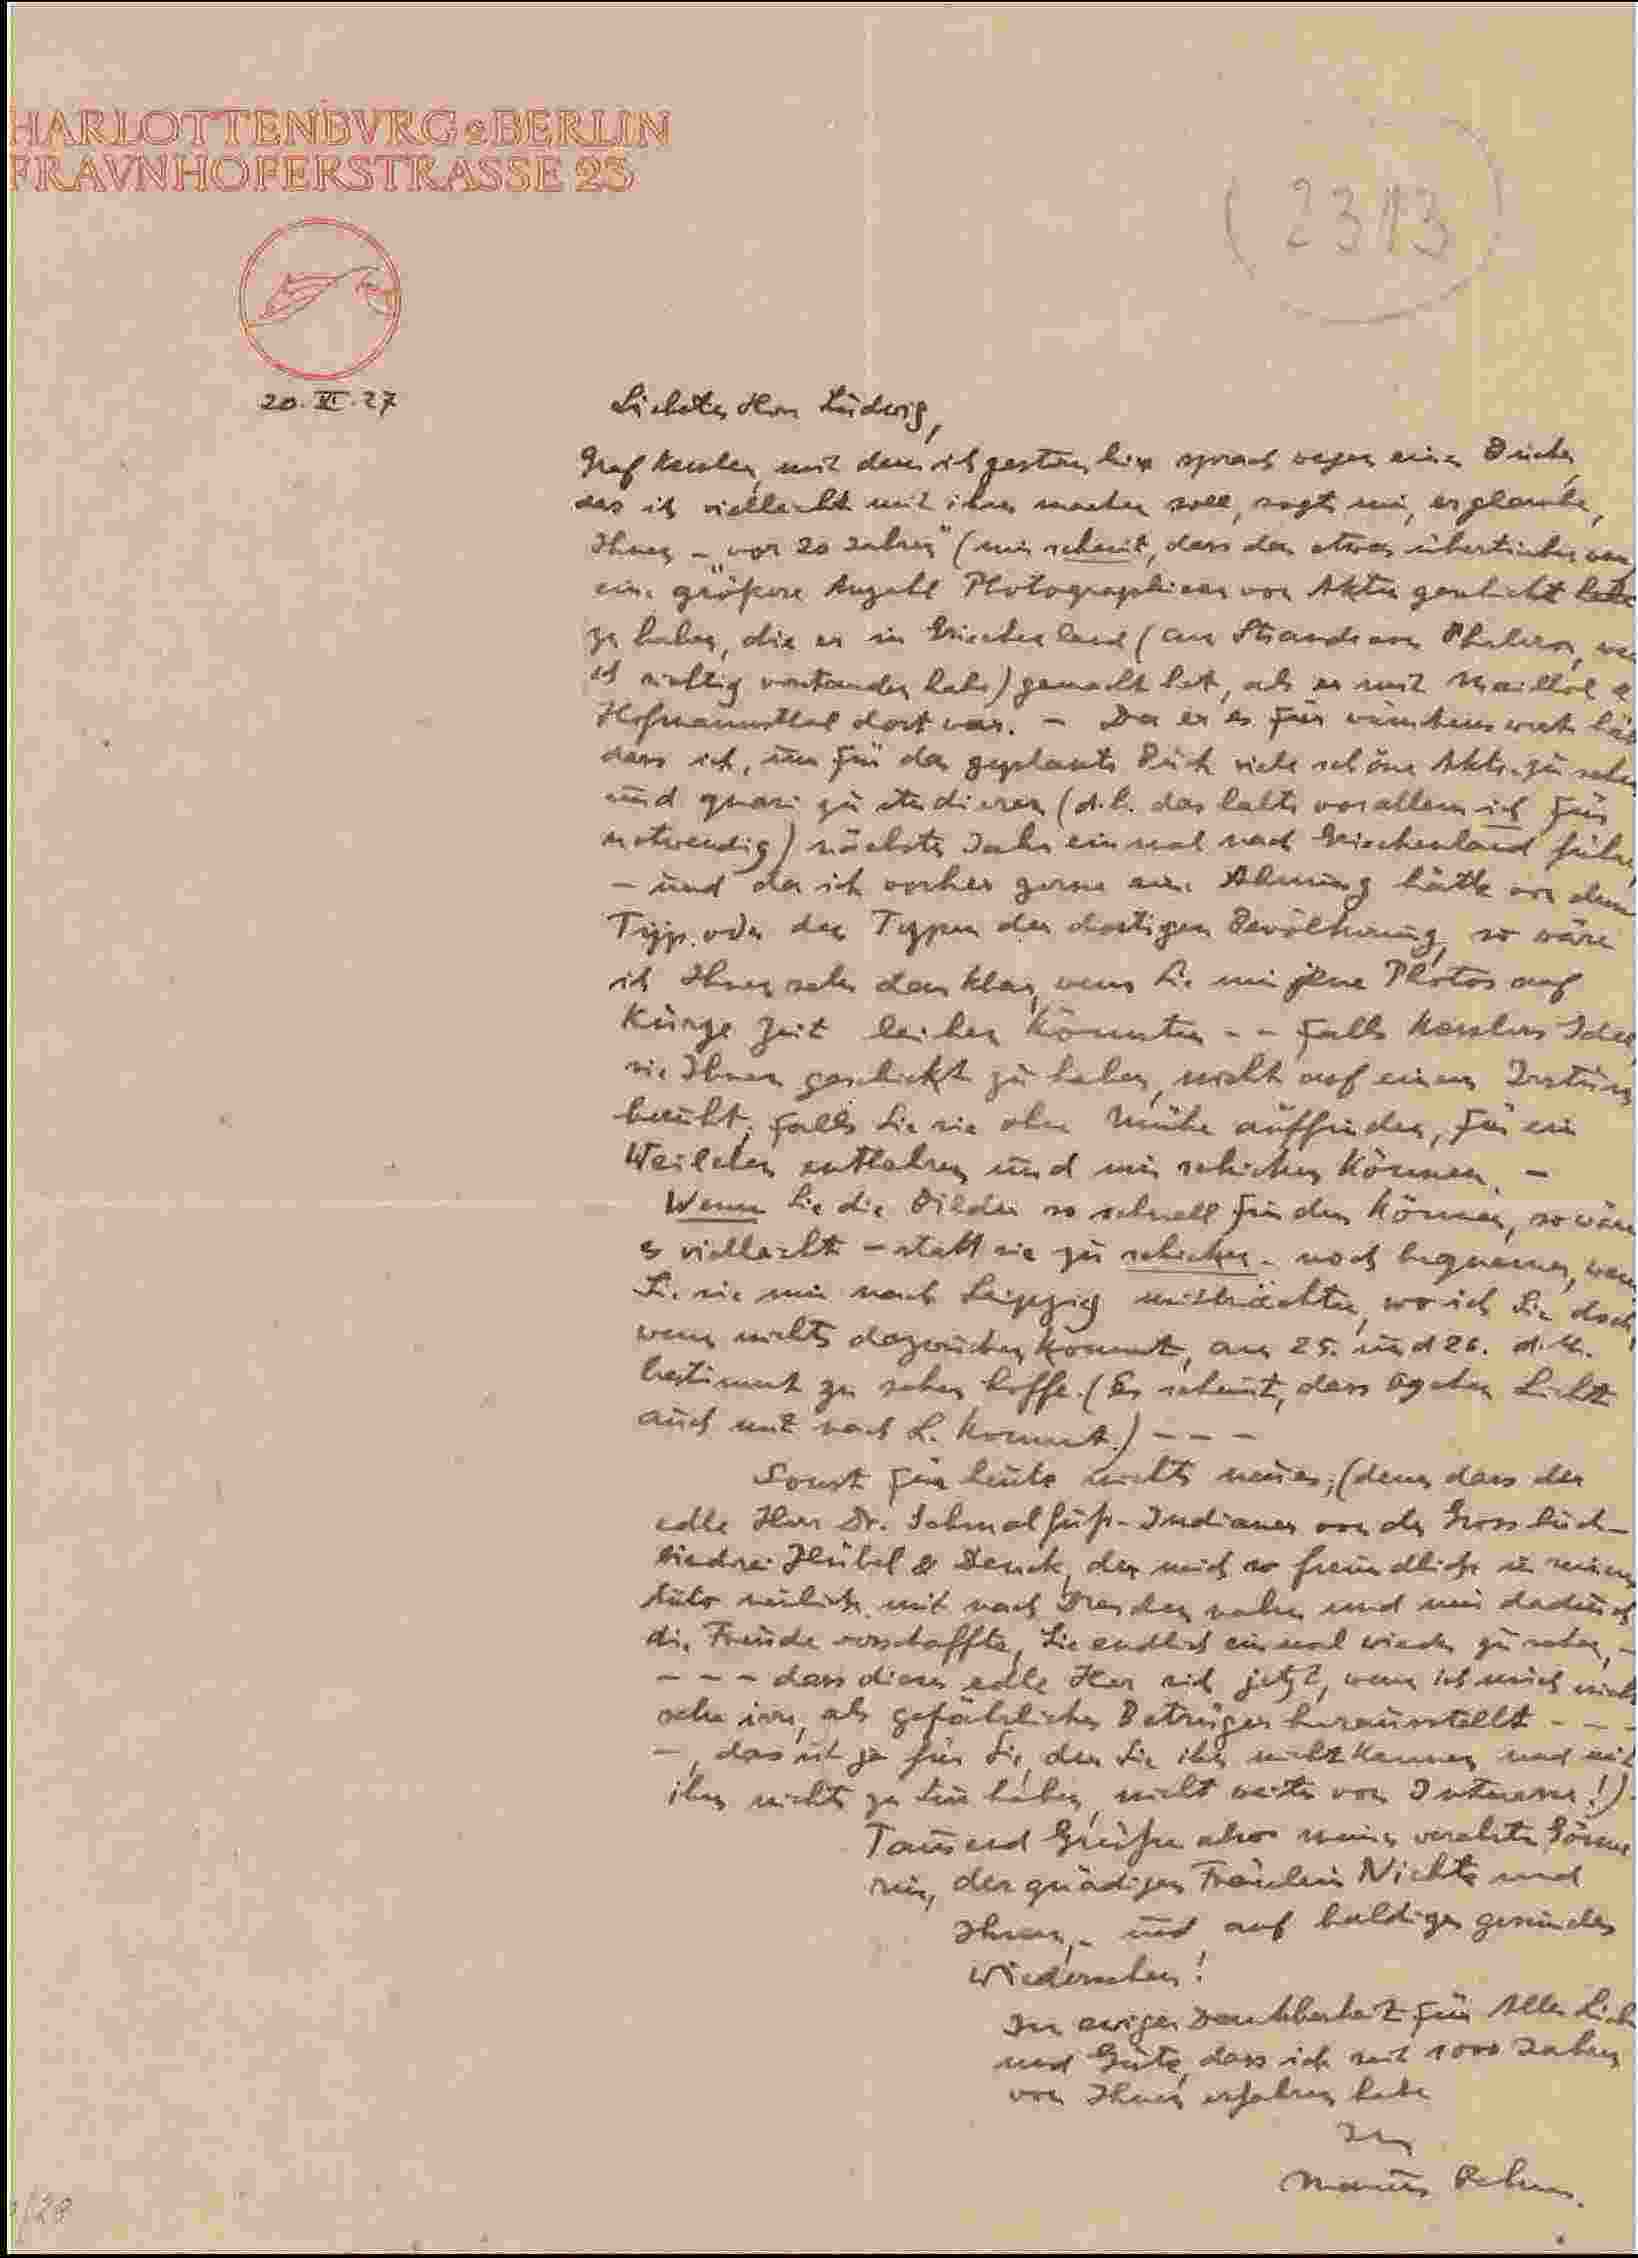 HARLOTTENBVRG BERLIN
FRAVNHOFERSTRASSE 23
(2313)
20. XI. 27
Liebster Herr Ludwig,
Graf Kessler, mit dem ich gestern hier sprach wegen eines Buches,
das ich vielleicht mit ihm machen soll, sagt mir, er glaube,
Ihnen – „vor 20 Jahren" (mir scheint, dass das etwas übertrieben
eine größere Anzahl Photographieen von Akten geschickt
zu haben, die er in Griechenland (am Strande von Phaleron,
ich richtig verstanden habe) gemacht hat, als er mit Maillol &
Hofmannsthal dort war. – Da er es für wünschenswert
dass ich, um für das geplante Buch viele schöne Akte zu
und quasi zu studieren (d.h. das halte vor allem ich für
notwendig) nächstes Jahr einmal nach Griechenland
– und da ich vorher gerne eine Ahnung hätte von dem
Typ oder den Typen der dortigen Bevölkerung, so wäre
ich Ihnen sehr dankbar, wenn Sie mir jene Photos auf
kurze Zeit leihen könnten – – falls Kesslers Idee,
sie Ihnen geschickt zu haben, nicht auf einem
beruht; falls Sie sie ohne Mühe auffinden, für ein
Weilchen entbehren und mir schicken können. –
Wenn Sie die Bilder so schnell finden können, so
es vielleicht – statt sie zu schicken – noch bequemer,
Sie sie mir nach Leipzig mitbrächten, wo ich Sie doch,
wenn nichts dazwischen kommt, am 25. und 26. d. M.
bestimmt zu sehen hoffe. (Es scheint, dass
auch mit nach L. kommt.) – – –
Sonst für heute nichts neues; (denn dass der
edle Herr Dr. Schmalfuß-Indianer von der Grossbuch-
binderei Hübel & Denck, der mich so freundlich in seinem
Auto neulich mit nach Dresden nahm und mir dadurch
die Freude verschaffte, Sie endlich einmal wieder zu sehen, –
– – – dass dieser edle Herr sich jetzt, wenn ich mich nicht
sehr irre, als gefährlicher Betrüger herausstellt – – –
–, das ist ja für Sie, der Sie ihn nicht kennen und mit
ihm nichts zu tun haben, nicht weiter von Interesse!)
Tausend Grüße also meiner verehrten Gönne-
rin, der gnädigen Fräulein Nichte und
Ihnen, – und auf baldiges gesundes
Wiedersehen!
In ewiger Dankbarkeit für alles
und Güte, dass ich seit 1000 Jahren
von Ihnen erfahren habe
Ihr
Marcus Behmer.
/28